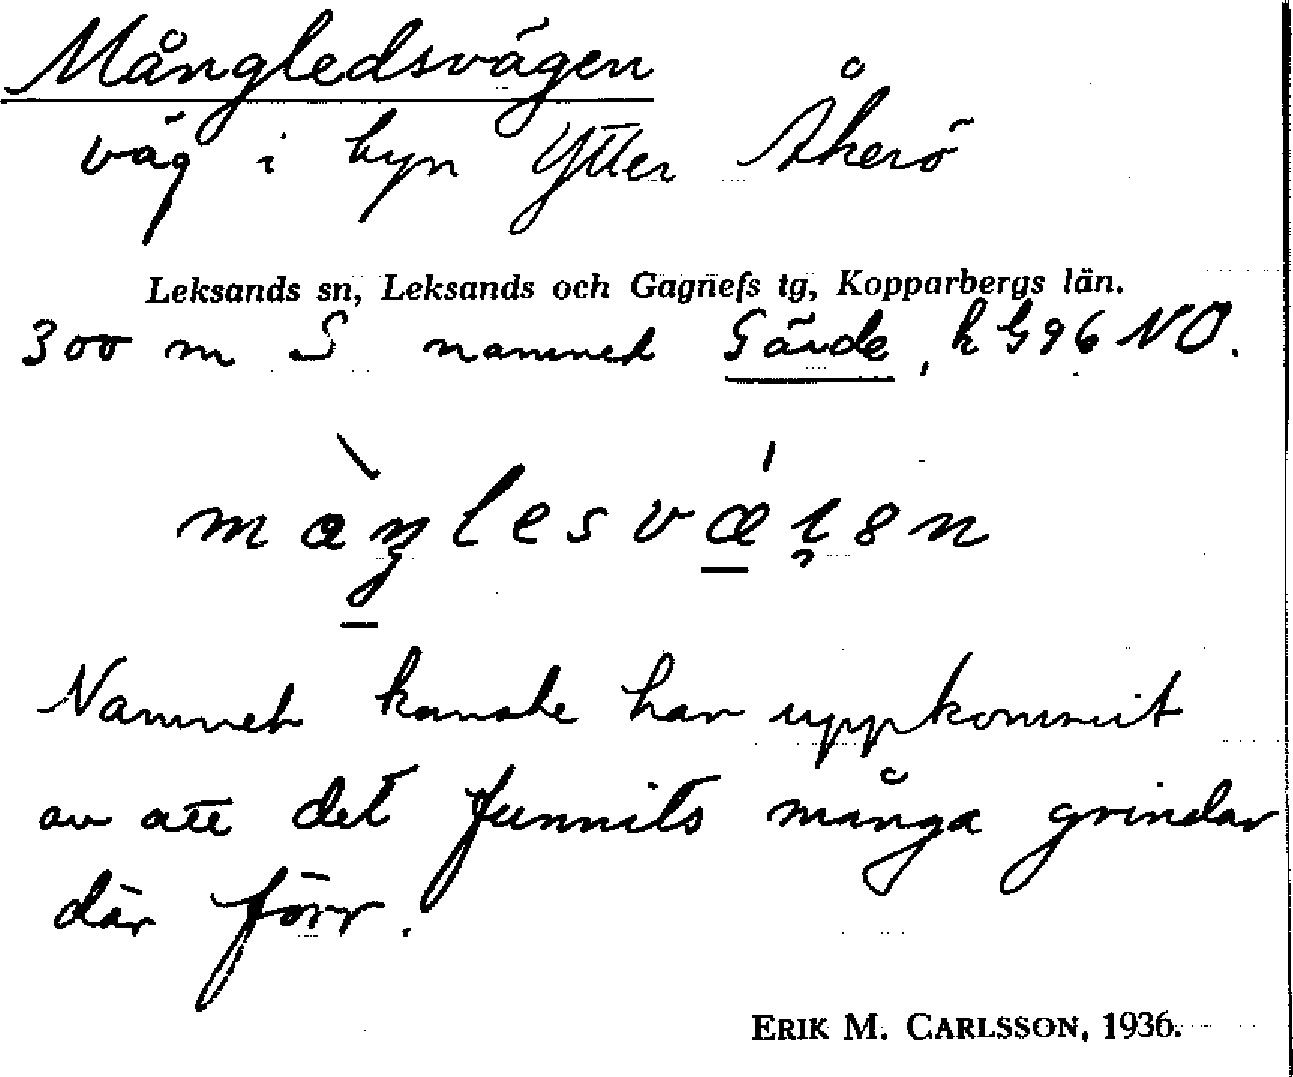 Mångledsvägen
väg i byn Ytter Åkerö
Leksands sn, Leksands och Gagnefs tg, Kopparbergs län.
300 m S namnet Gärde, k G96 NO.
Namnet kanske har uppkommit
av att det funnits många grindar
där förr.
ERIK M. CARLSSON, 1936.